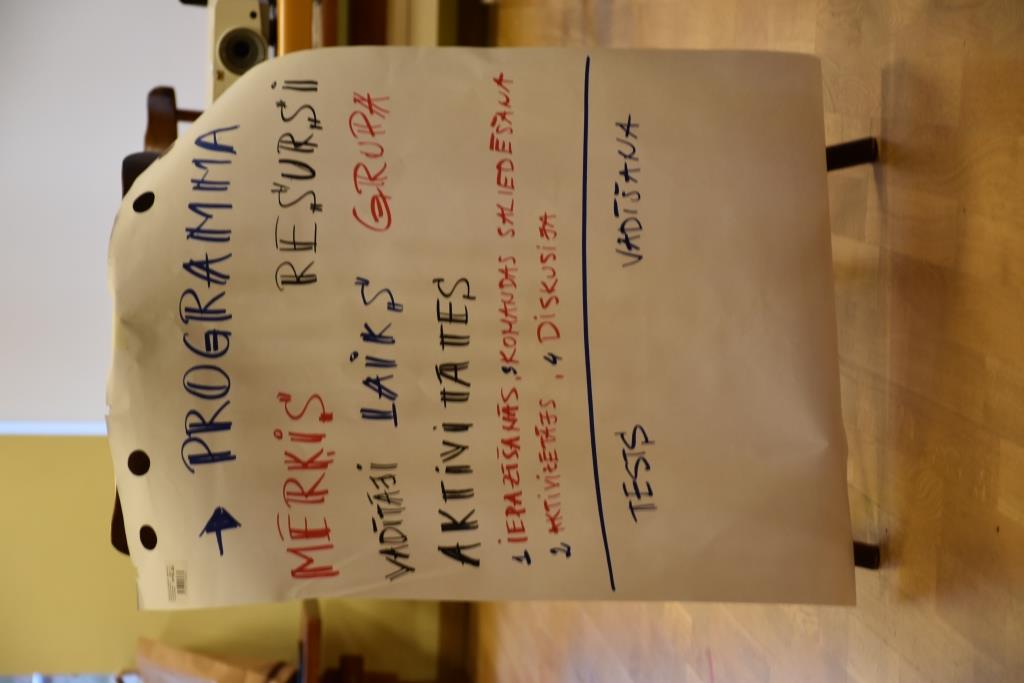 → PROGRAMMA
MĒRĶIS RESURSI
VADĪTĀJI LAIKS GRUPA
AKTIVITĀTES
1 IEPAZĪŠANĀS, 3 KOMANDAS SALIEDĒŠANA
2 AKTIVIZĒTĀJS, 4 DISKUSIJA
TESTS VADĪŠANA